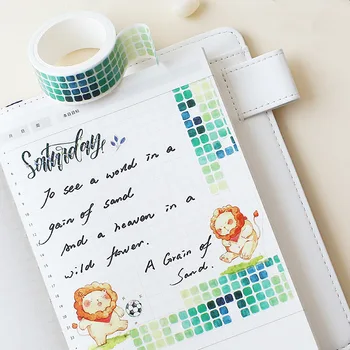 Saturday
To see a world in a
gain of sand
And a heaven in a
wild flower.
A Grain of
Sand.